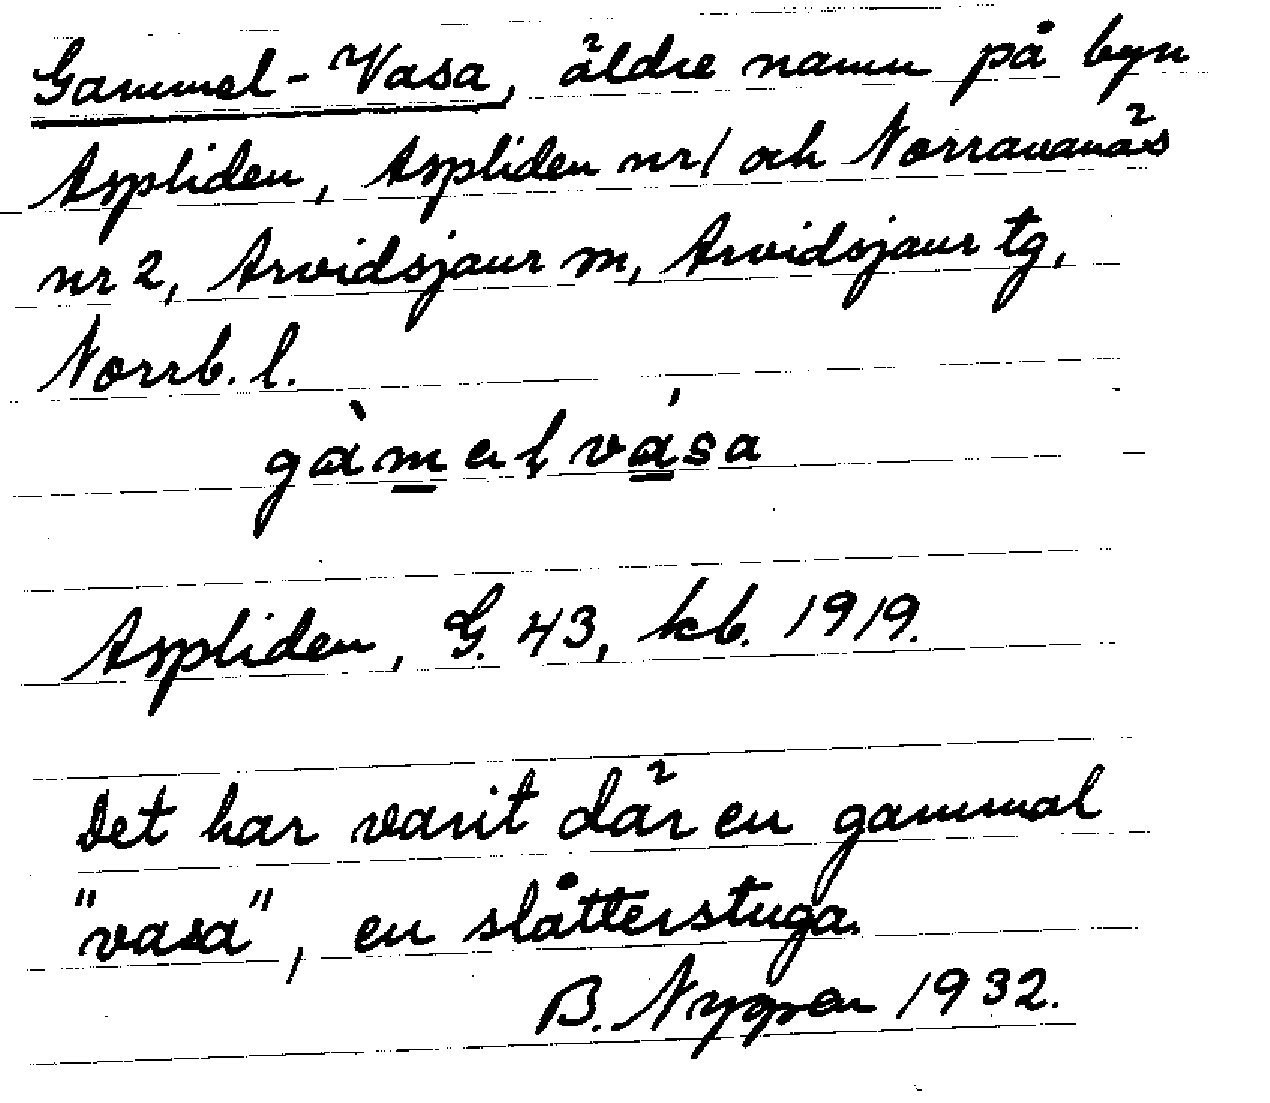 Gammel-Vasa, äldre namn på byn
Aspliden, Aspliden nr 1 och Norravanäs
nr 2, Arvidsjaur m, Arvidsjaur tg,
Norrb. l.
gàmalvása
Aspliden, G. 43, kb. 1919.
Det har varit där en gammal
"vasa", en slåtterstuga.
B. Nygren 1932.